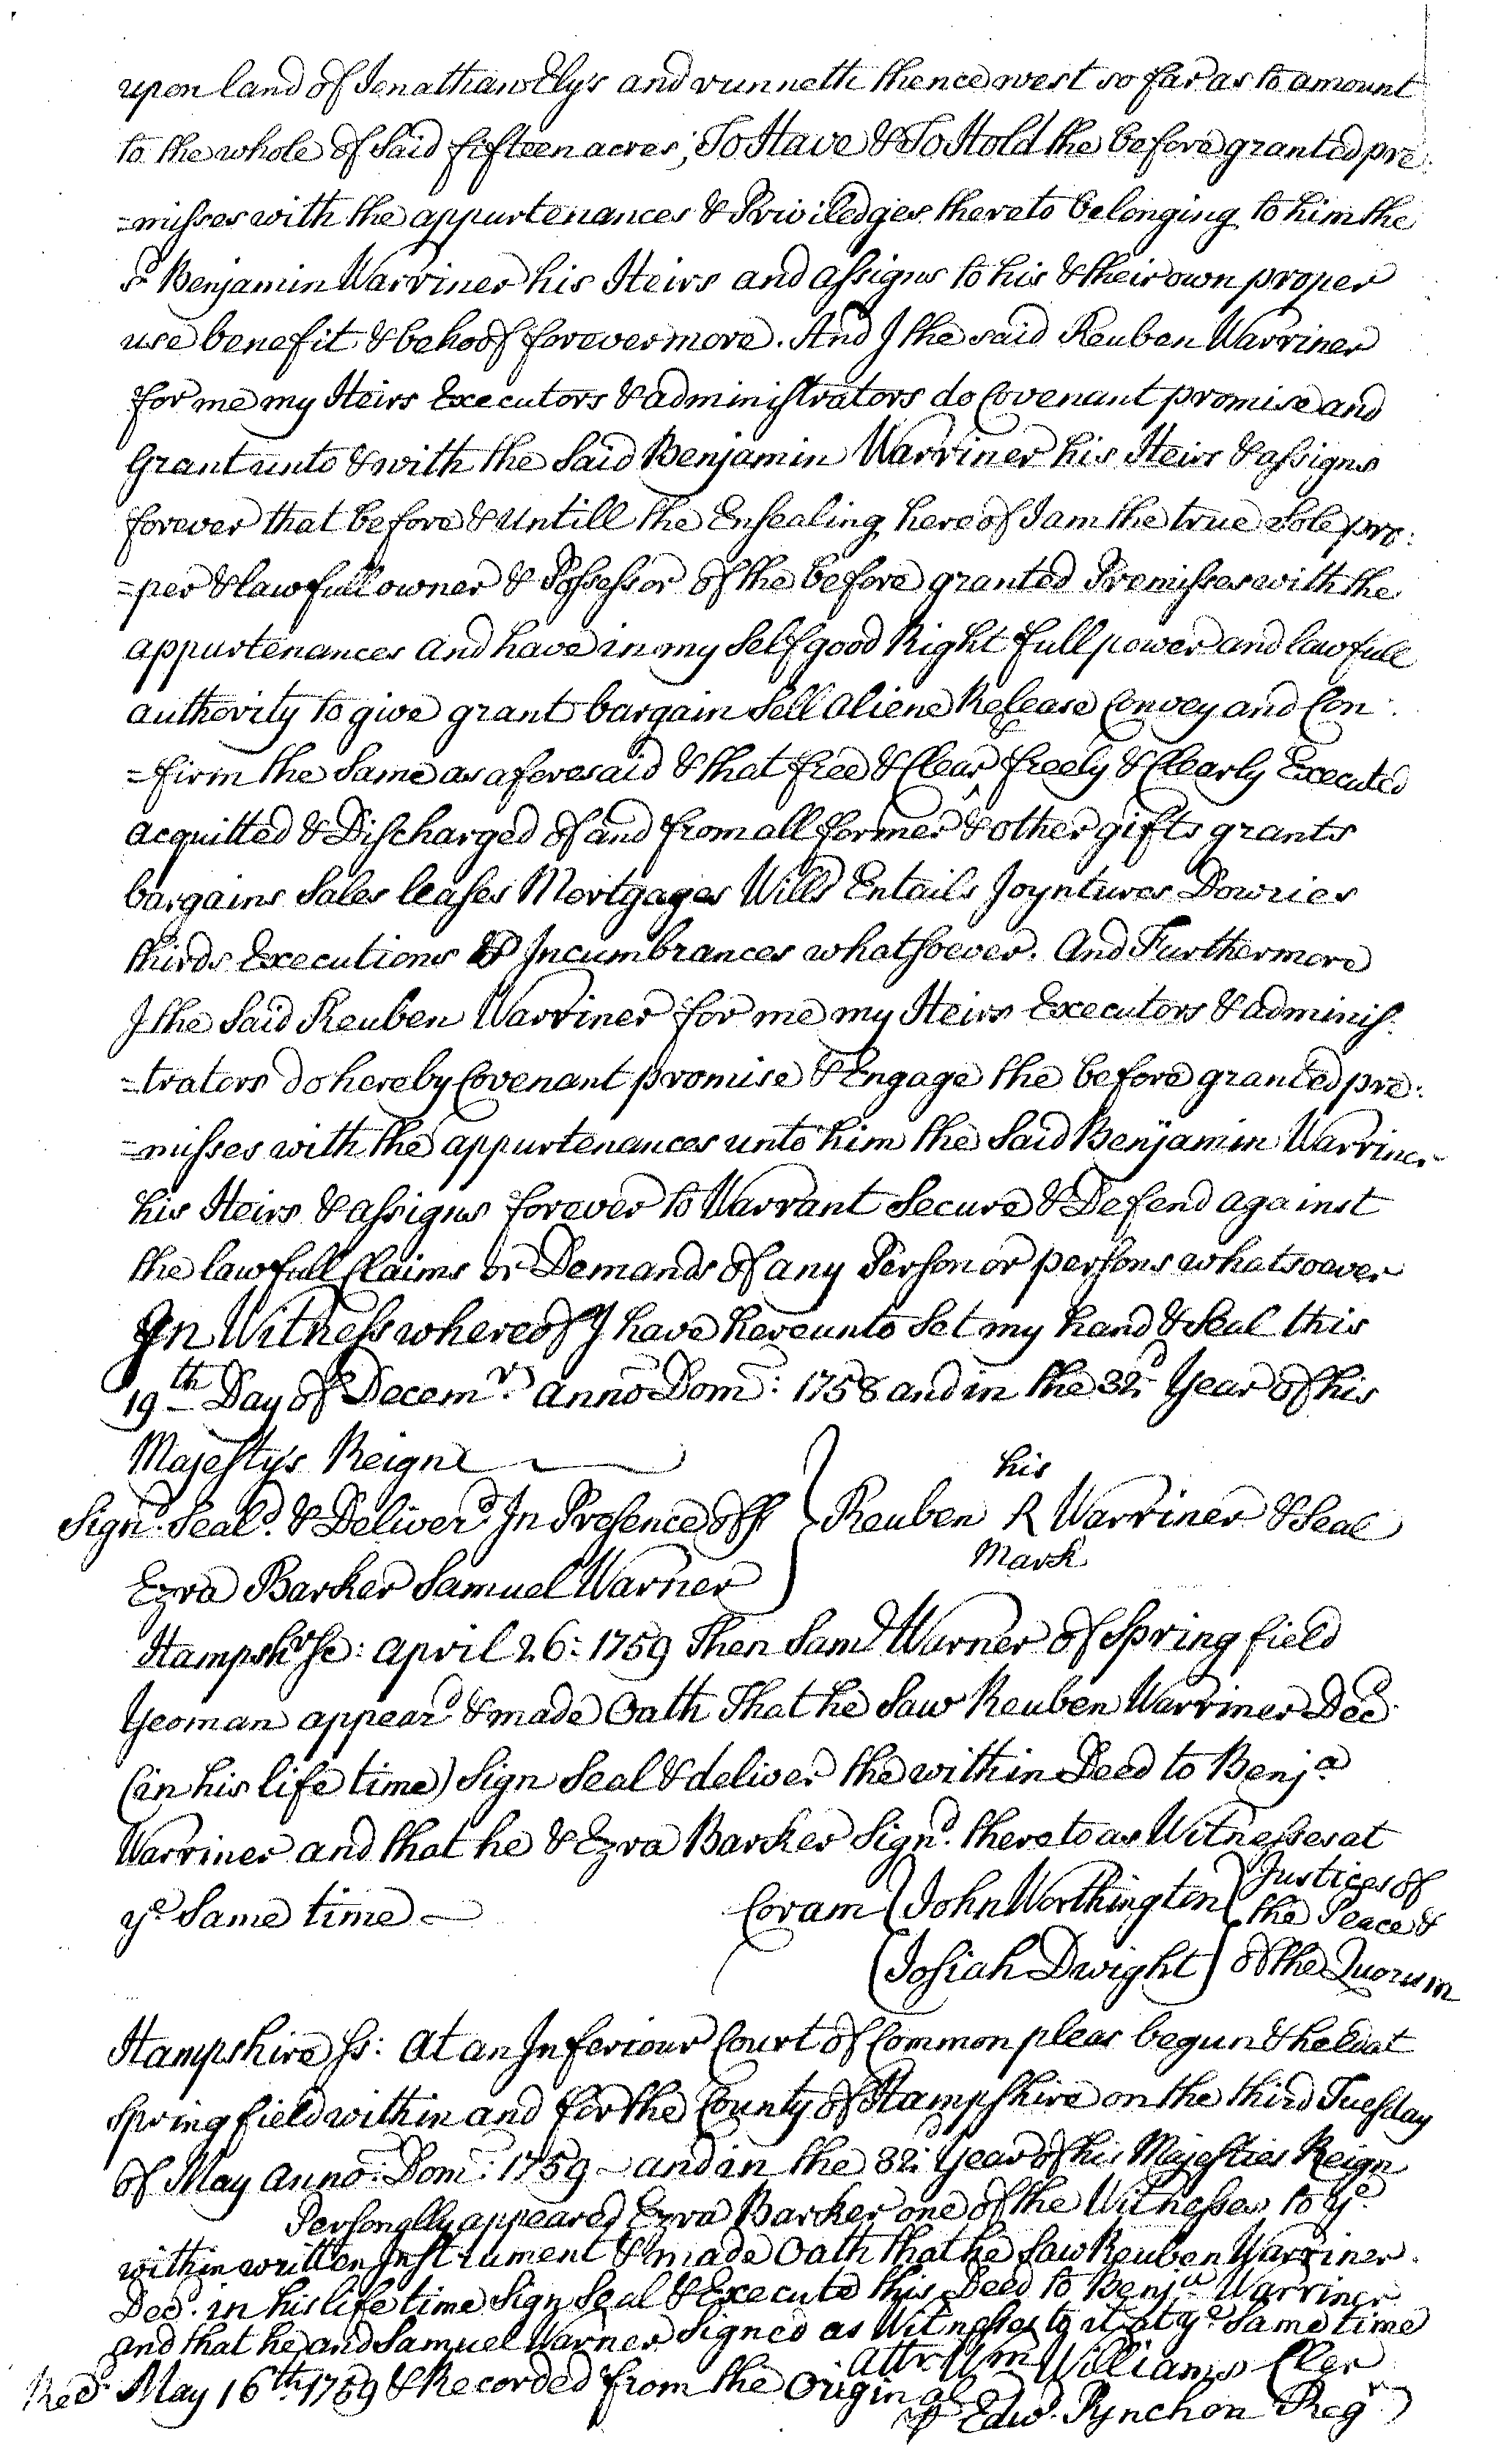 upon land of Jonathan Ely's and runneth thence west so far as to amount
to the whole of Said fifteen acres; To Have & To Hold the before granted pre:
=misses with the appurtenances & Priviledges thereto belonging to him the
sd. Benjamin Warriner his Heirs and assigns to his & their own proper
use benefit & behoof forevermore. And I the said Reuben Warriner
for me my Heirs Executors & administrators do Covenant promise and
Grant unto & with the Said Benjamin Warriner his Heirs & assigns
forever that before & Untill the Ensealing hereof I am the true Sole pro:
=per & lawfull owner & Possessor of the before granted Premisses with the
appurtenances and have in my Self good Right full power and lawfull
authority to give grant bargain Sell aliene Release Convey and Con:
=firm the Same as aforesaid & that free & Clear, freely & Clearly Executed
acquitted & Discharged of and from all former & other gifts grants
bargains Sales leases Mortgages Wills Entails Joyntures Dowries
thirds Executions & Incumbrances whatsoever. And Furthermore
I the Said Reuben Warriner for me my Heirs Executors & adminis:
=trators do hereby Covenant promise & Engage the before granted pre:
=misses with the appurtenances unto him the Said Benjamin Warriner
his Heirs & assigns forever to Warrant Secure & Defend against
the lawfull Claims or Demands of any Person or persons whatsoever
In Witness whereof I have hereunto Set my hand & Seal this
19th Day of Decemr. anno Dom: 1758 and in the 32d. Year of his
Majesty's Reign
Signd. Seald. & Deliverd. In Presence off
Ezra Barker Samuel Warner
his
Reuben R Warriner & Seal
Mark
Hampshr. Ss: april 26: 1759 Then Saml Warner of Springfield
Yeoman appeard. & made Oath That he Saw Reuben Warriner Decd.
(in his life time) Sign Seal & deliver the within Deed to Benja.
Warriner and that he & Ezra Barker Signd. thereto as Witnesses at
ye Same time
Coram (John Worthington) Justices of
the Peace &
(Josiah Dwight) of the Quorum
Hampshire Ss: At an Inferiour Court of Common pleas begun & held at
Springfield within and for the County of Hampshire on the third Tuesday
of May Anno: Dom: 1759 - and in the 32d: Year of his Majesties Reign
Personally appeared Ezra Barker one of the Witnesses to ye
within written Instrument & made Oath that he Saw Reuben Warriner
Decd. in his life time Sign Seal & Execute this Deed to Benja Warriner
and that he and Samuel Warner Signed as Witnesses to it at ye Same time
attr Wm Williams Cler
Recd. May 16th. 1759 & Recorded from the Original
⅌ Edwd. Pynchon Regr.